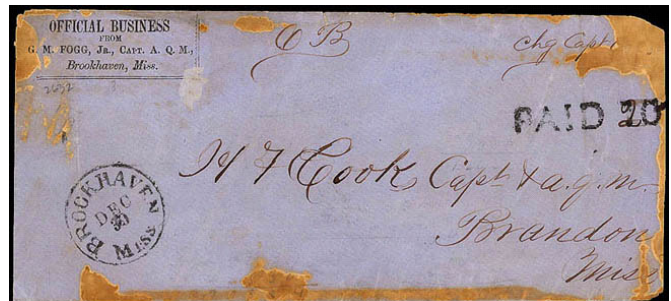 OFFICIAL BUSINESS
FROM
G. M. FOGG, JR., CAPT. A. Q. M.,
Brookhaven, Miss.
O B
chg Capt
2632
PAID 20
BROCKHAVEN
DEC
30
MISS
Cook Capt & a.q.m.
Brandon
Miss